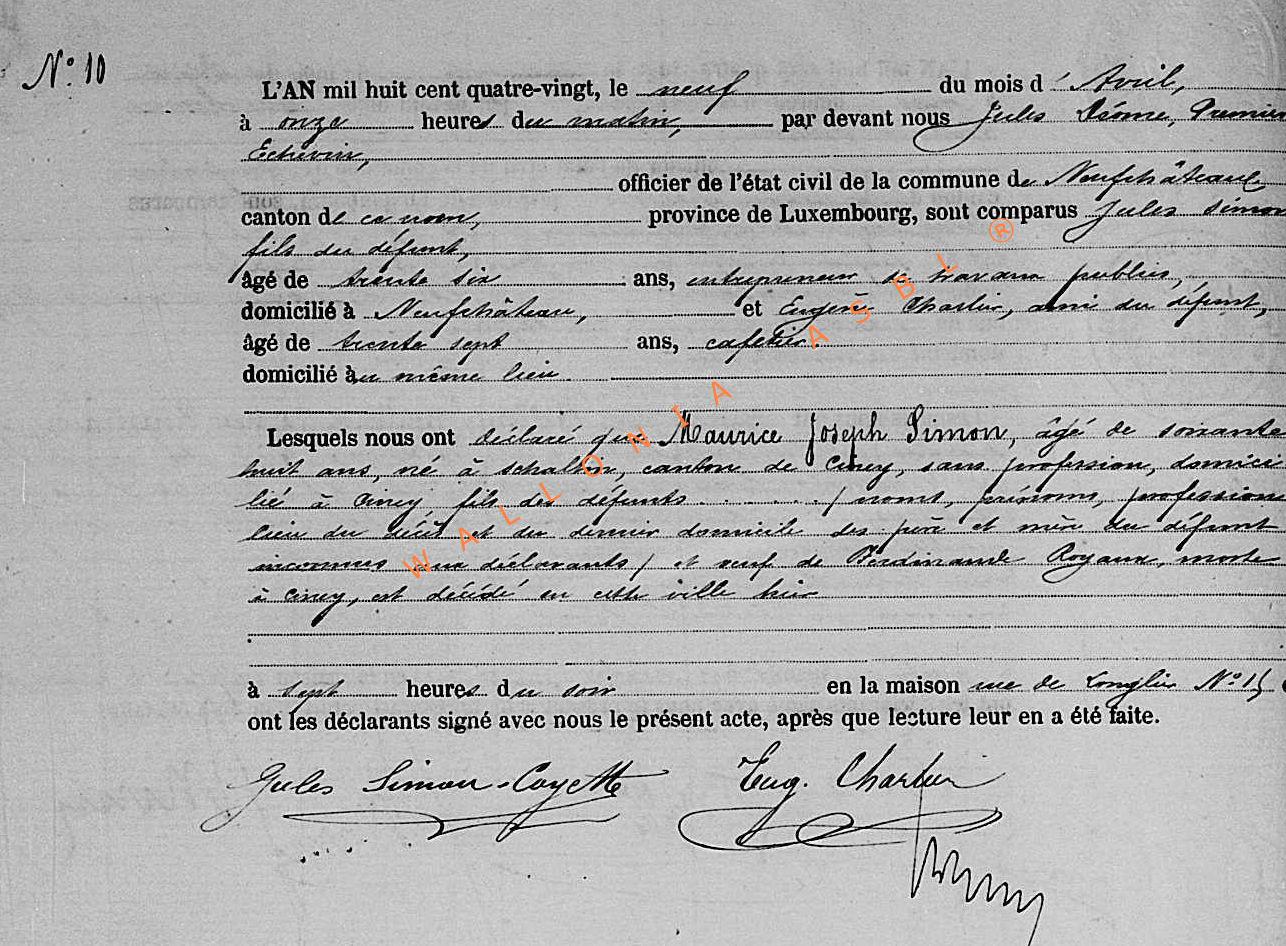 N° 10
L'AN mil huit cent quatre-vingt, le neuf du mois d'Avril,
à onze heures du matin, par devant nous Jules Premier
Echevin,
officier de l'état civil de la commune de Neufchâteau
canton de ce nom, province de Luxembourg, sont comparus Jules Simon
fils du défunt,
âgé de trente six ans, entrepreneur de travaux publics,
domicilié à Neufchâteau, et Eugène Charlier, ami du défunt,
âgé de trente sept ans, cafetier
domicilié au même lieu
Lesquels nous ont déclaré que Maurice Joseph Simon, âgé de soixante
huit ans, né à Schaltin, canton de Ciney, sans profession, domici
lié à Ciney, fils des défunts . . . . . . (noms, prénoms, profession
lieu du décès et du dernier domicile des père et mère du défunt
inconnus aux déclarants) et veuf de Ferdinande Royaux, morte
à Ciney, est décédé en cette ville hier
à sept heures du soir en la maison rue de Longlier N° 15
ont les déclarants signé avec nous le présent acte, après que lecture leur en a été faite.
Jules Simon-Coyette Eug. Charlier
WALLONIA ASBL ®